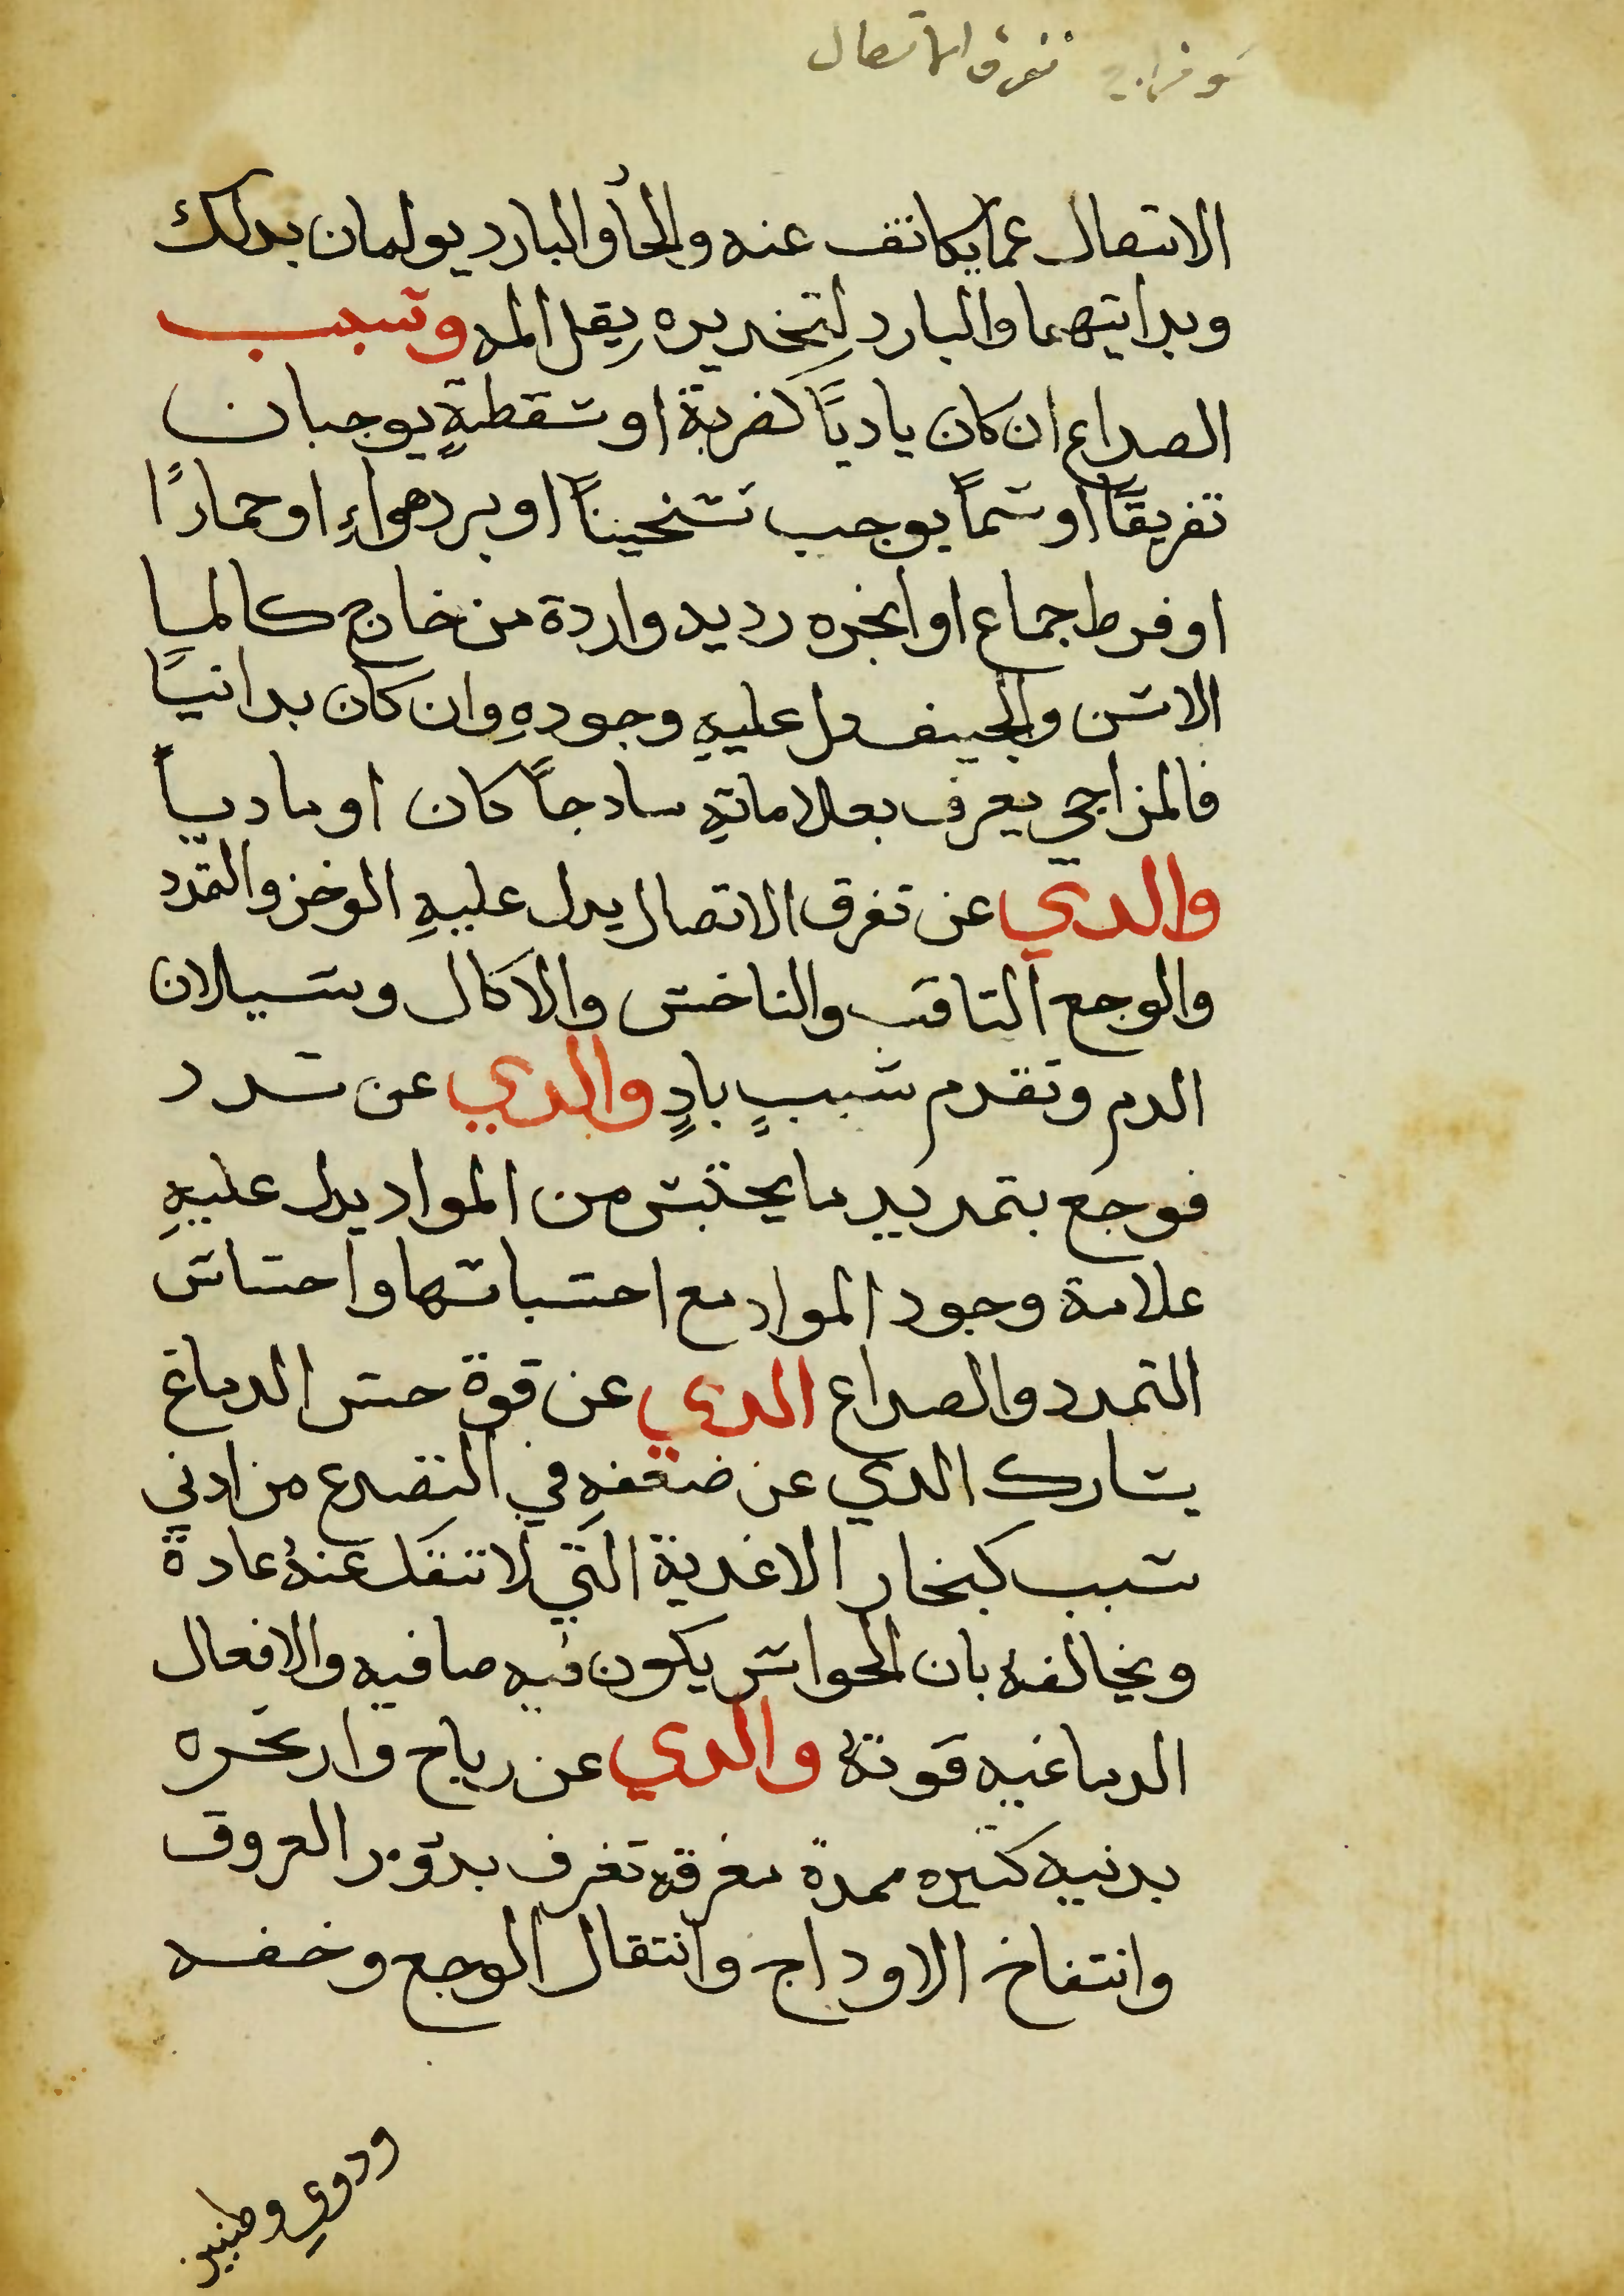 تفرق الاتصال
الاتصال عما يكاتف عنه والحاَر والبارد يولمان بدلك
وبداتيهما والبارد لِتخديره يِقل المه وتسبب
الصداع ان كان يادياً كضربة او سَقطةٍ يوجبان
تفريقاً او شماً يوجب تسَخيناً او برد هواءِ او حمارًا
او فرط جماع او ابخره رديه واردة من خارج كالميا
الاسَن والجيف دل عليهِ وجودهِ وان كان بدانيًا
فالمزاجي يعرف بعلاماتهِ سادجاً كان او ماديباً
والدي عن تفرق الاتصال يدل عليهِ الوخز والتمدد
والوجع التاقب والناخسَ والاكال وسَيلان
الدم وتقدم سَببٍ بادٍ والدي عن سَدد
فوجع بتمديد ما يحتبسَ من المواد يدل عليهِ
علامة وجود المواد مع احتسباتها واحسَاسَ
التمدد والصداع الدي عن قوة حسَ الدماغ
يشارك الدي عن ضعفهِ في التصدع من ادني
سَبب كبخار الاغدية التي لا تنفك عنهُ عادة
ويخالفه بان الحواسَ يكون فيه صافيه والافعال
الدماغيه قوتهُ والدي عن رياح وابخره
بدنيه كتيره ممدة مفرقه تعرف بدوَر العروق
وانتفاخ الاوداج وانتقال الوجع وخفه
ودوي وطنين